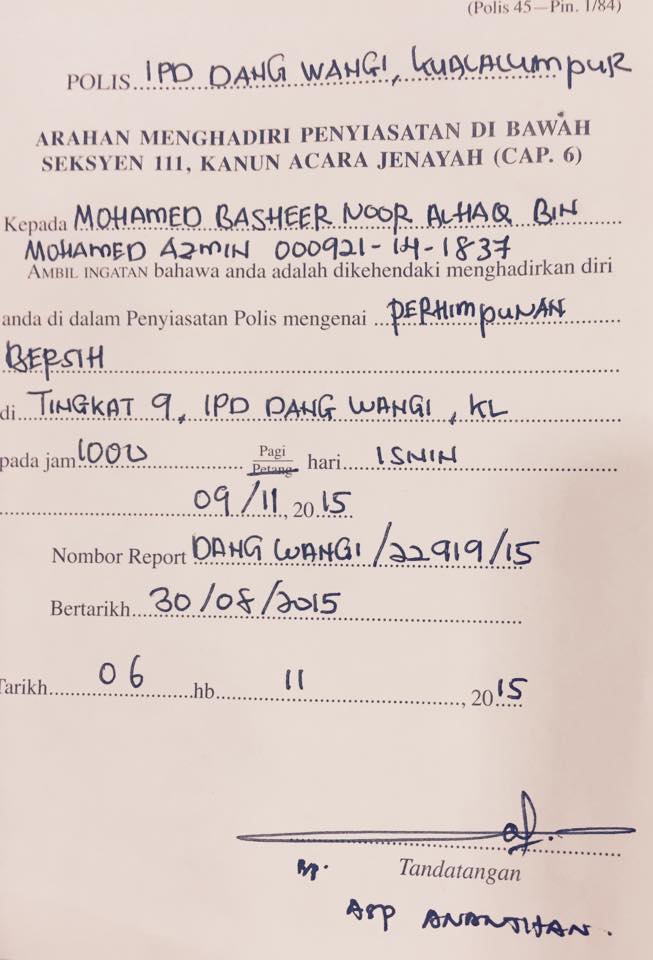 (Polis 45—Pin. 1/84)
POLIS IPD DANG WANGI, KUALALUMPUR
ARAHAN MENGHADIRI PENYIASATAN DI BAWAH
SEKSYEN 111, KANUN ACARA JENAYAH (CAP. 6)
Kepada MOHAMED BASHEER NOOR ALHAQ BIN
MOHAMED AZMIN 000921-14-1837
AMBIL INGATAN bahawa anda adalah dikehendaki menghadirkan diri
anda di dalam Penyiasatan Polis mengenai PERHIMPUNAN
BERSIH
di TINGKAT 9, IPD DANG WANGI, KL
pada jam 1000 Pagi/Petang hari ISNIN
09/11, 2015
Nombor Report DANG WANGI/22919/15
Bertarikh 30/08/2015
Tarikh 06 hb 11, 2015
Tandatangan
ASP ANANTHAN.